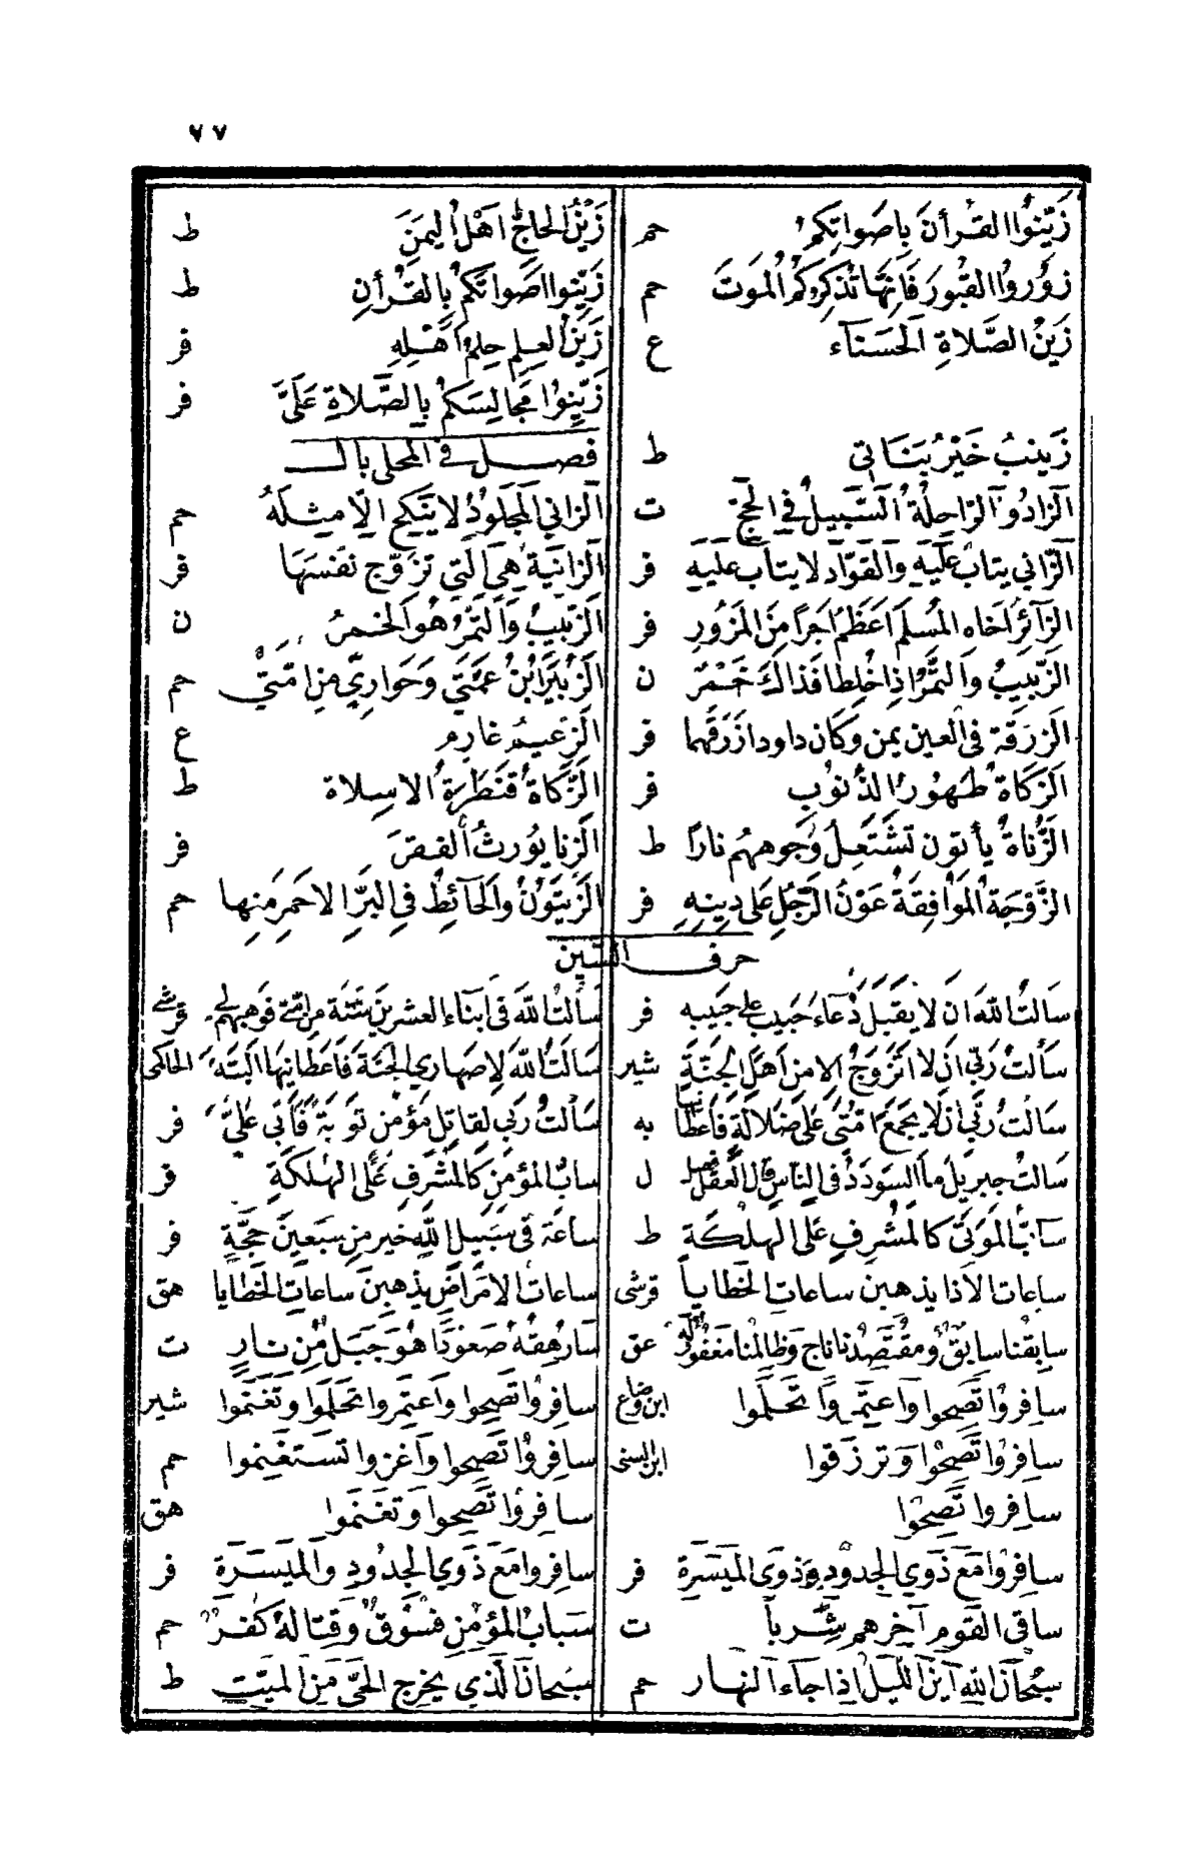 ٦٧
زَيِّنُوا القرأنَ بِاصَواتِكم حم
زوُروا القبُورَ فَاِنّهَا تُذكِرُكُم الْمَوتَ حم
زَينُ الصَّلاةِ الحَسَنآء ع
زَينبُ خَيْرُ بَنَاتي ط
اَلزادُ وُ اَلرّاحِلةُ اَلسَّبيلُ في الحَجّ ت
اَلزّاني يتابُ عَلَيهِ وَالقوّاد لا يتابَ عليَهِ فر
الزآئِرُ اَخاه المُسلمَ اَعَظمُ اجَراً مِنَ المَزُورِ فر
الزّبيبُ واَلتمْرُ اِذا خُلِطا فَذاكَ خَمْرٌ ن
اَلزرَقة فى العين يمن وكان داود ازرَقهما فر
اَلزكَاةُ طَهوُرُ الذُنوُبِ فر
الزُّناةُ يأتون تشتَعِلُ وُجوههُم نارًا ط
الزَّوَجَةُ المُوَافِقَةُ عَوْنُ الرّجُلِ عَلى دِينِهِ فر
زَيْنُ الحَاجّ اَهْلُ اليمَنَ ط
زَيّنِوا اصَواتَكُم بِالقُرأنِ ط
زَيْنُ العِلمِ حِلمُ اَهْلِهِ فر
زَيّنِوُا مَجالِسَكمُ بِالصَّلاةِ عَلَىَّ فر
فصل فى المحلى بال
اَلزاني المَجلَودُ لا يَنكِح اِلّا مِثلَهُ حم
اَلزانيَة هِيَ الَّتي تزوّج نفسَهَا فر
الزّبيبُ وَالتَمْرُ هُو الخمرُ ن
الزُبَيْرُ ابْنُ عَمَّتَي وَحَوارِيَّ مِن امّتيّ حم
اَلزعَيمُ غارِم ع
الزّكاةُ قنطَرَةُ الاسِلاة ط
الزِنا يوُرثُ الفقَ فر
الزَيتوُنُ وَالحَآئِطُ فيِ البَرّ الاحَمرِ مَنِها حم
حرف السّين
سَالتُ اللّه اَن لايَقبَلَ دُعآء حَبَيب على حَبيبِه فر
سَأَلتُ رَبّي اَن لا اتزَوَجُ اِلا مِن اَهلَ الجَنّةِ شير
سَالتُ رَبّي اَن لا يجَمعَ اُمّتى عَلى ضَلالَةٍ فاَعطَانيها به
سَالتُ جِبريلَ ما السَودَدُ فى النّاسِ قال العَقل ل
سَآبُّ المَوَتىَ كالمُشرِفِ عَلى الهلكَةِ ط
ساعات الاَذا يذهبن ساعاتِ الخَطاياً قرشى
سابِقنا سابِقٌ ومُقتَصَدُنا ناج وَظالمنُا مَغفوُر لَه عق
سافِروُا تَصِحوا وَاعتِمّوا تحَلّموا
سافِروُا تَصِحّوُا وَترزَقوا ابن السنى
سافِروا تَصِحّوُا
سافِرُوا مَعَ ذَوي الجدوُدِ وَذوَى المَيَسَرةِ فر
ساقى القَومِ آخِرهم شِرباً ت
سُبحَانَ اللّهِ اَينَ اللّيلُ اِذا جَآءَ النهار حم
سَأَلتُ اللّهَ فى اَبنَاء العشرينَ سَنَة مِن اُمّتى فوَهبهم لى قرشى
سَالَتُ اللّهَ لِاصهَاري الجَنة فاَعَطانيهَا البَتةَ الحاكمى
سَألتُ رَبي لِقاتِل مَؤمِن تَوبَة فَاَبى عَليَّ فر
سابُّ المؤمنِ كالمُشرفِ عَلى الهلكَةِ فر
ساعَة فى سَبيلِ اللّهِ خَير مِن سَبعينَ حَجَّةٍ فر
ساعاتُ الامَراضِ يذهبنَ ساعاتِ الخَطايا هق
سَارُهِقهُ صَعوُدًا هُوَ جَبَل مُن نارٍ ت
سافِروُا تَصِحوا وَاعتِمروا تحَلمَوا وتغنَمُوا شير
سافِروُا تَصِحوا وَاغزوا تَستغنِموا حم
سافِروُا تَصِحوا وَتغنَموا هق
سافِروا مَعَ ذَوي الجِدوُدِ والميسَرَةِ فر
سَبابُ المؤمِنِ فسُوُق وَقِتالهُ كُفر حم
سَبحانَ الّذي يخرِج الحَيّ مَنِ الميّتِ ط